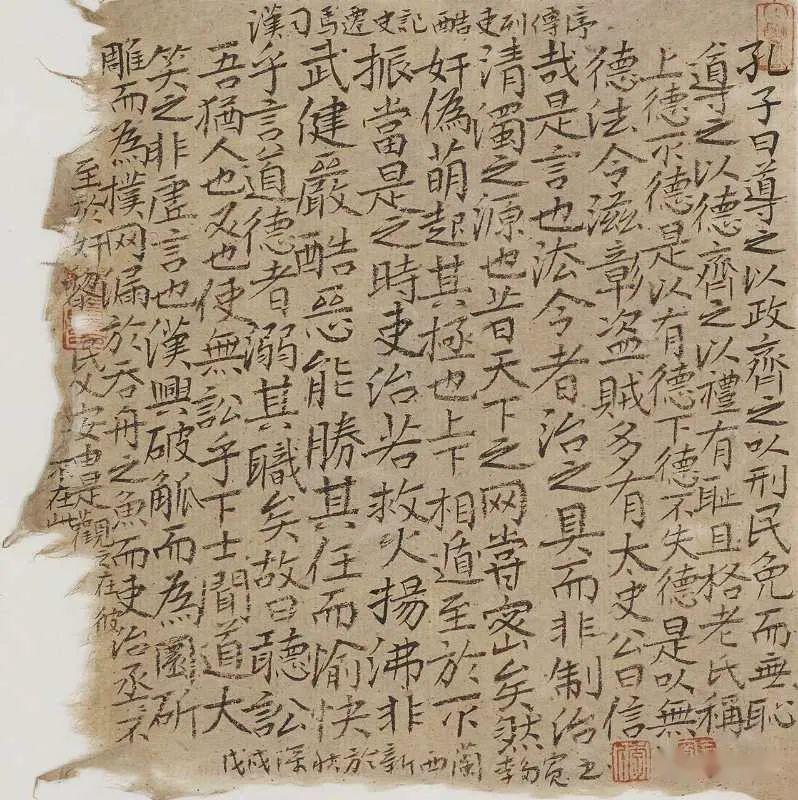 漢司馬遷史記酷吏列傳序
孔子曰導之以政齊之以刑民免而無恥
導之以德齊之以禮有恥且格老氏稱
上德不德是以有德下德不失德是以無
德法令滋彰盜賊多有太史公曰信
哉是言也法令者治之具而非制治
清濁之源也昔天下之网嘗密矣然
奸偽萌起其極也上下相遁至於不
振當是之時吏治若救火揚沸非
武健嚴酷惡能勝其任而愉快
乎言道德者溺其職矣故曰聽訟
吾猶人也必也使無訟乎下士聞道大
笑之非虛言也漢興破觚而為圜斫
雕而為樸网漏於吞舟之魚而吏治烝不
至於奸黎民乂安由是觀之在彼
不在此
戊戌深秋於新西蘭